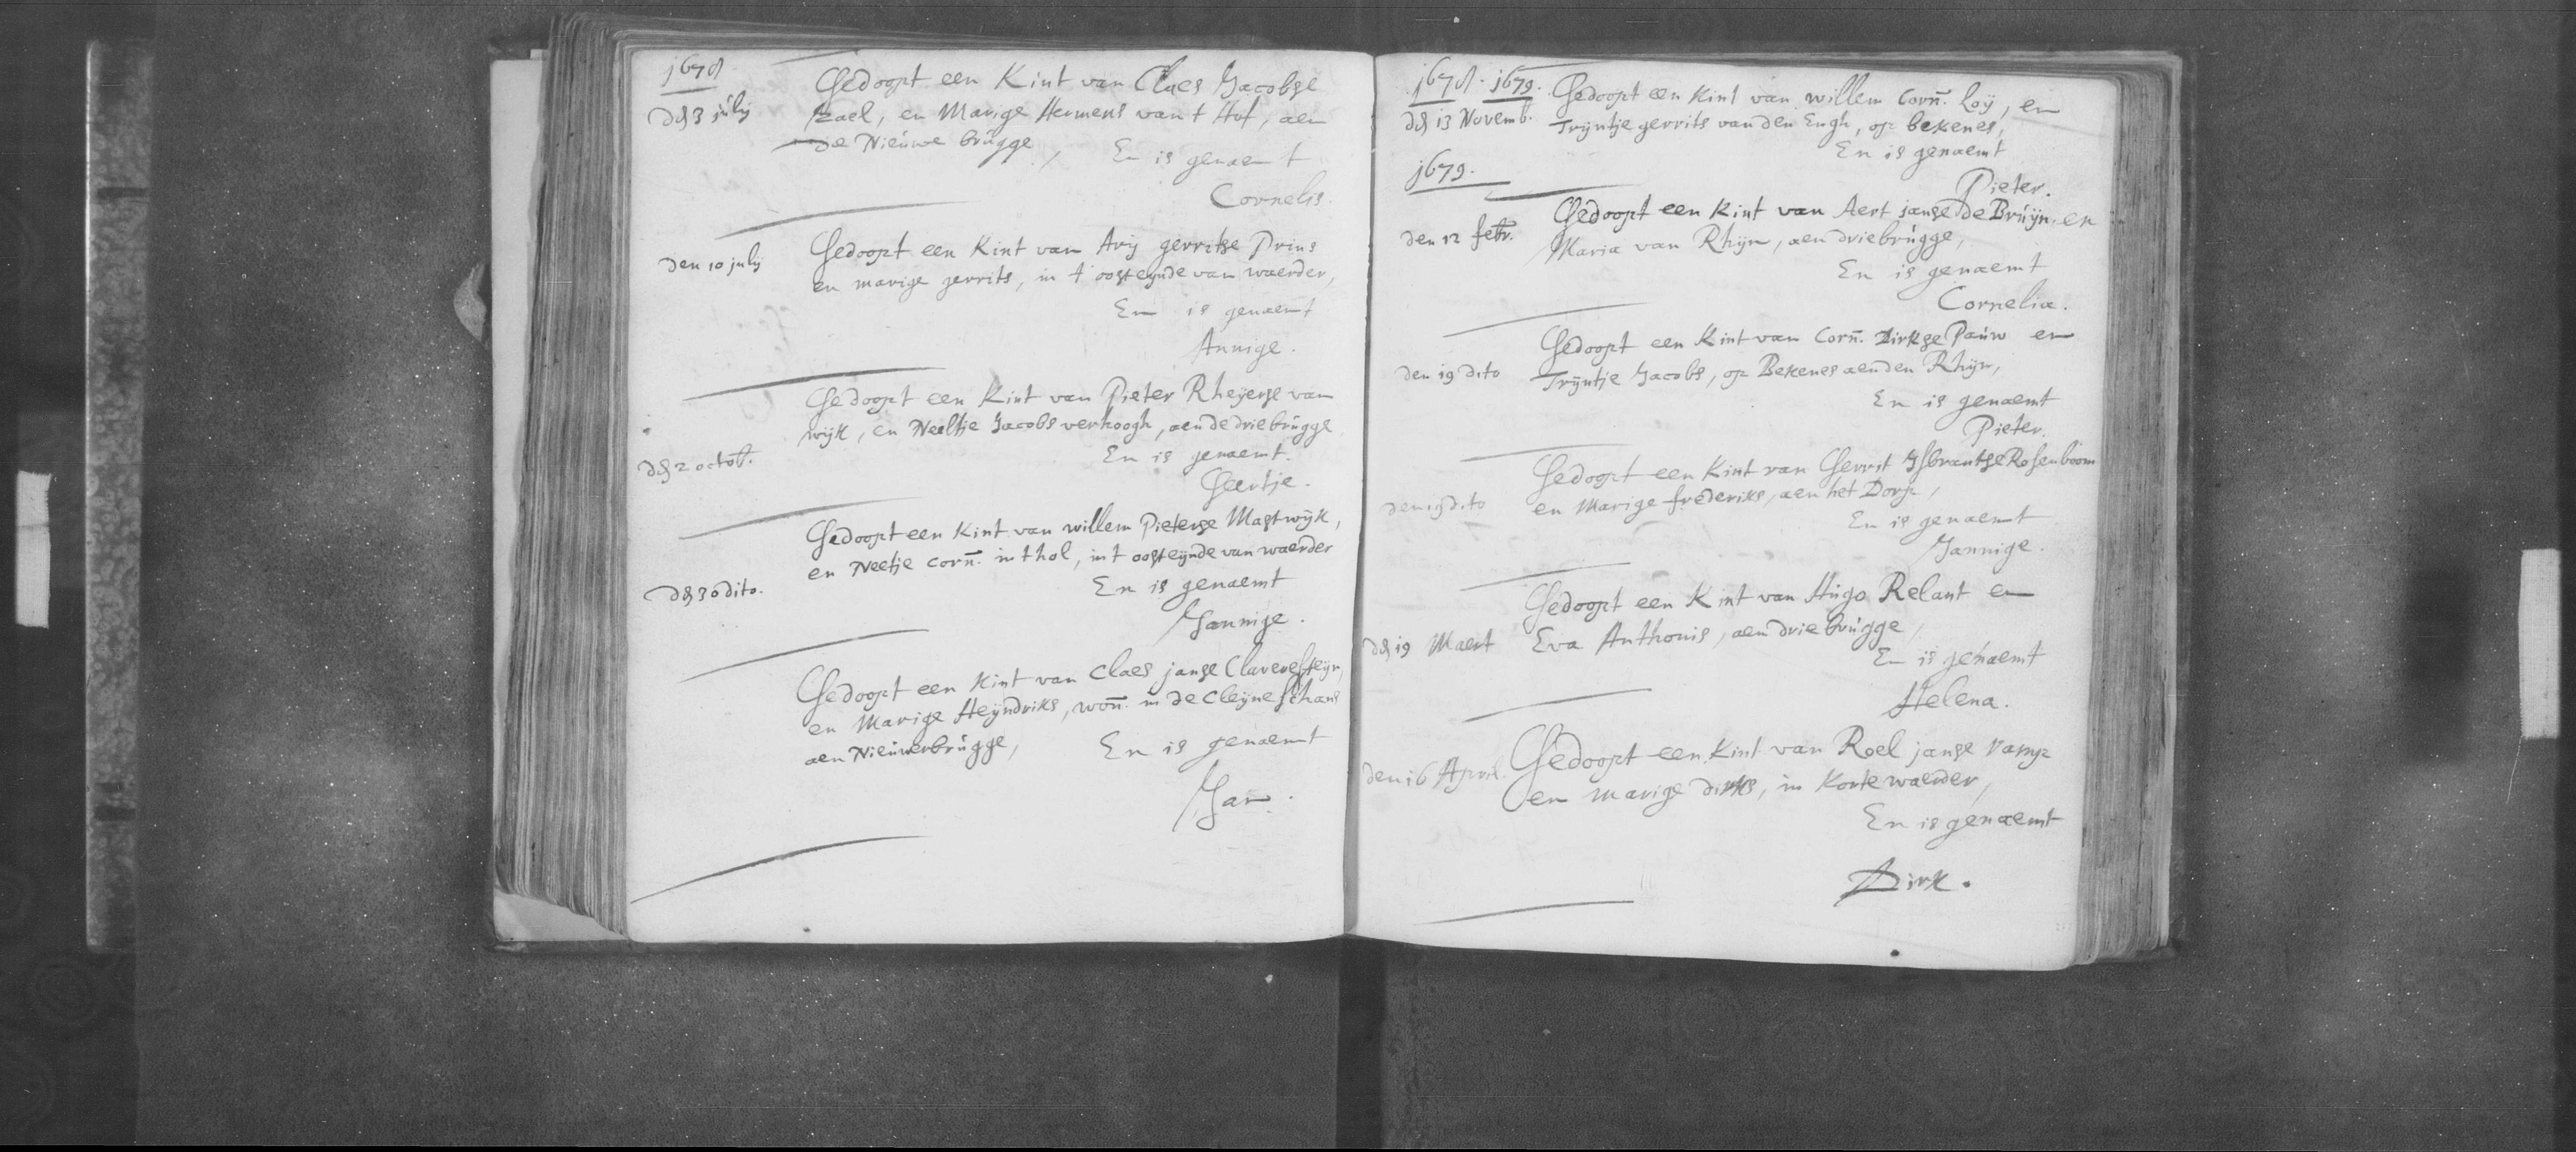 1678
d'3 july Gedoopt een Kint van Claes Jacobse
en Marige Hermens van t Hof, aen
de Nieuwe brugge, En is genaemt
Cornelis.
den 10 july Gedoopt een Kint van Arij gerritse Prins
en marige gerrits, in t oosteynde van waerder,
En is genaemt
Annige.
Gedoopt een Kint van Pieter Rheyerse van
wijk, en Neeltje Jacobs verhoogh, aen de driebrugge
d' 2 octob. En is genaemt.
Geertje.
Gedoopt een Kint van willem Pieterse Mastwijk,
en Neetje corn. in thol, in t oosteynde van waerder
d' 30 dito. En is genaemt
Jannige.
Gedoopt een Kint van Claes janse Claveresteyn,
en Marige Heyndriks, won. in de Cleyne Schans
aen Nieuwerbrugge, En is genaemt
Jan.
1678. 1679.
d' 13 Novemb. Gedoopt een Kint van willem Corn. Loy, en
Trijntje gerrits van den Engh, op bekenes,
En is genaemt
1679.
Pieter.
den 12 febr. Gedoopt een Kint van Aert janse de Bruijn, en
Maria van Rhijn, aen driebrugge,
En is genaemt
Cornelia.
Gedoopt een Kint van Corn. Dirkse Pauw en
den 19 dito Trijntje Jacobs, op Bekenes aen den Rhijn,
En is genaemt
Pieter.
Gedoopt een Kint van Gerrit Ysbrantse Rosenboom
den 19 dito en Marige frederiks, aen het Dorp,
En is genaemt
Jannige.
Gedoopt een Kint van Hugo Relant en
d' 19 Maert Eva Anthonis, aen driebrugge,
En is genaemt
Helena.
den 16 April. Gedoopt een Kint van Roel janse Vamp
en marige dirks, in Korte waerder,
En is genaemt
Dirk.